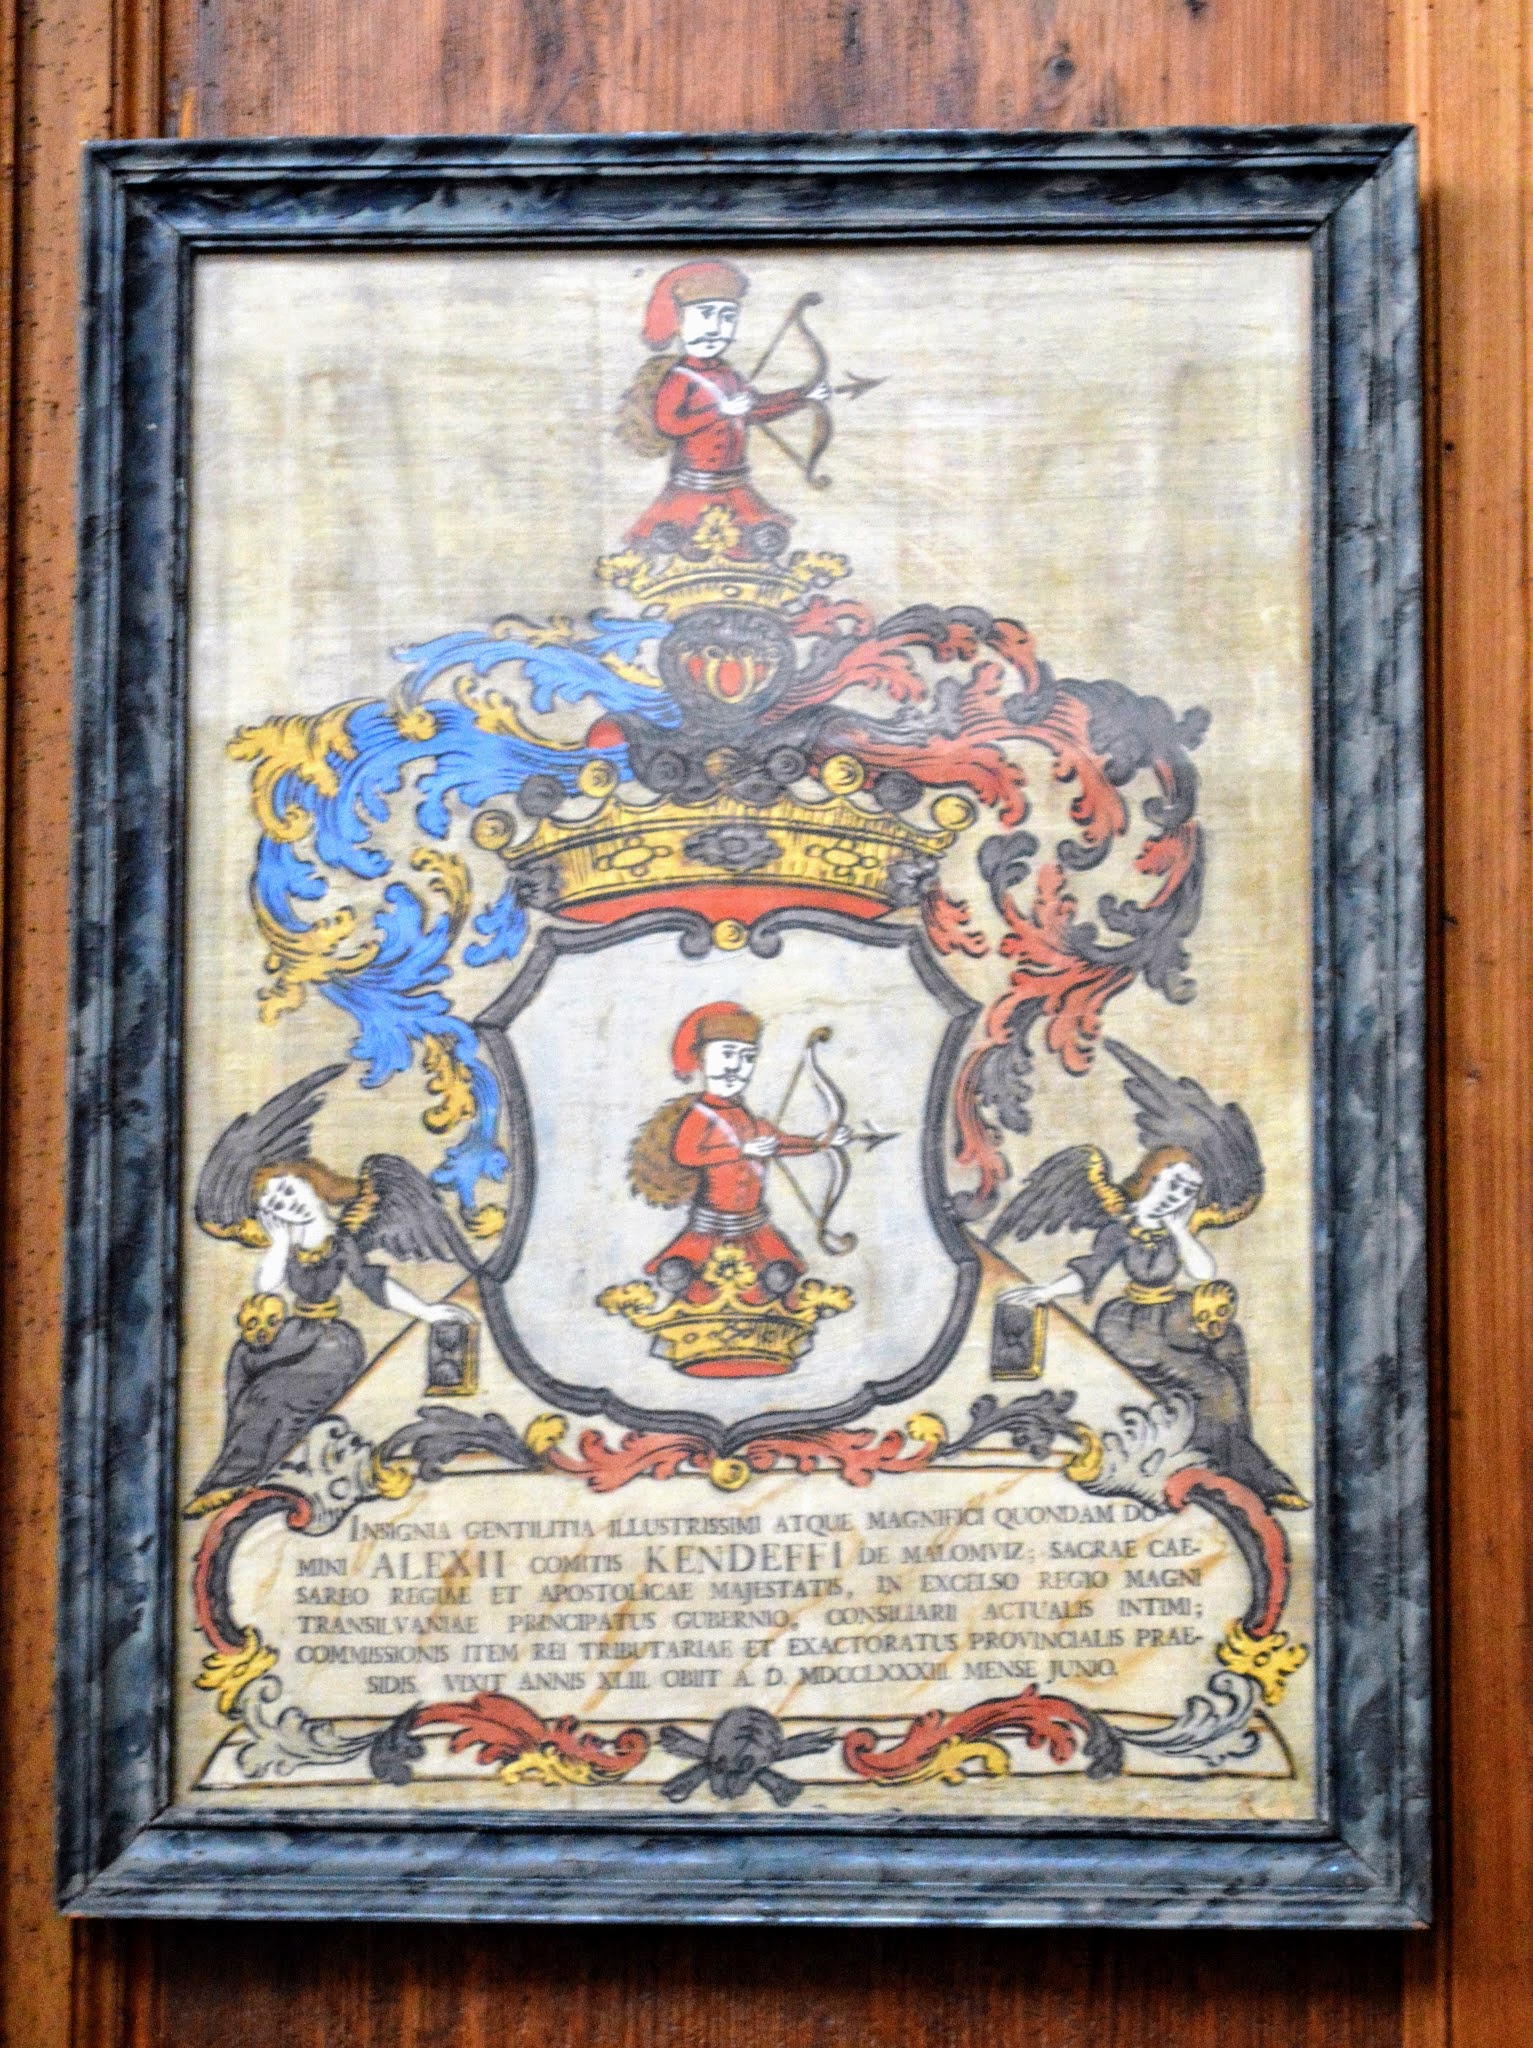 INSIGNIA GENTILITIA ILLUSTRISSIMI ATQUE MAGNIFICI QUONDAM DO-
MINI ALEXII COMITIS KENDEFFI DE MALOMVIZ; SACRAE CAE-
SAREO REGIAE ET APOSTOLICAE MAJESTATIS, IN EXCELSO REGIO MAGNI
TRANSILVANIAE PRINCIPATUS GUBERNIO, CONSILIARII ACTUALIS INTIMI;
COMMISSIONIS ITEM REI TRIBUTARIAE ET EXACTORATUS PROVINCIALIS PRAE-
SIDIS. VIXIT ANNIS XLIII. OBIIT A. D. MDCCLXXXIII. MENSE JUNIO.